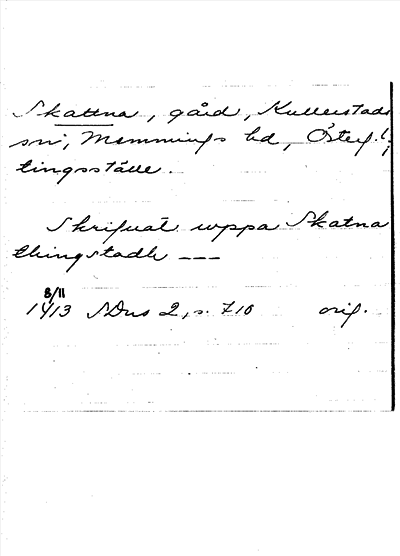 Skattna, gård, Kullerstads
sn, Memmings hd, Östg.!
tingsställe.
Skrifuat uppa Skatna
thingstadh ---
8/11
1413 SDns 2, s. 710 orig.